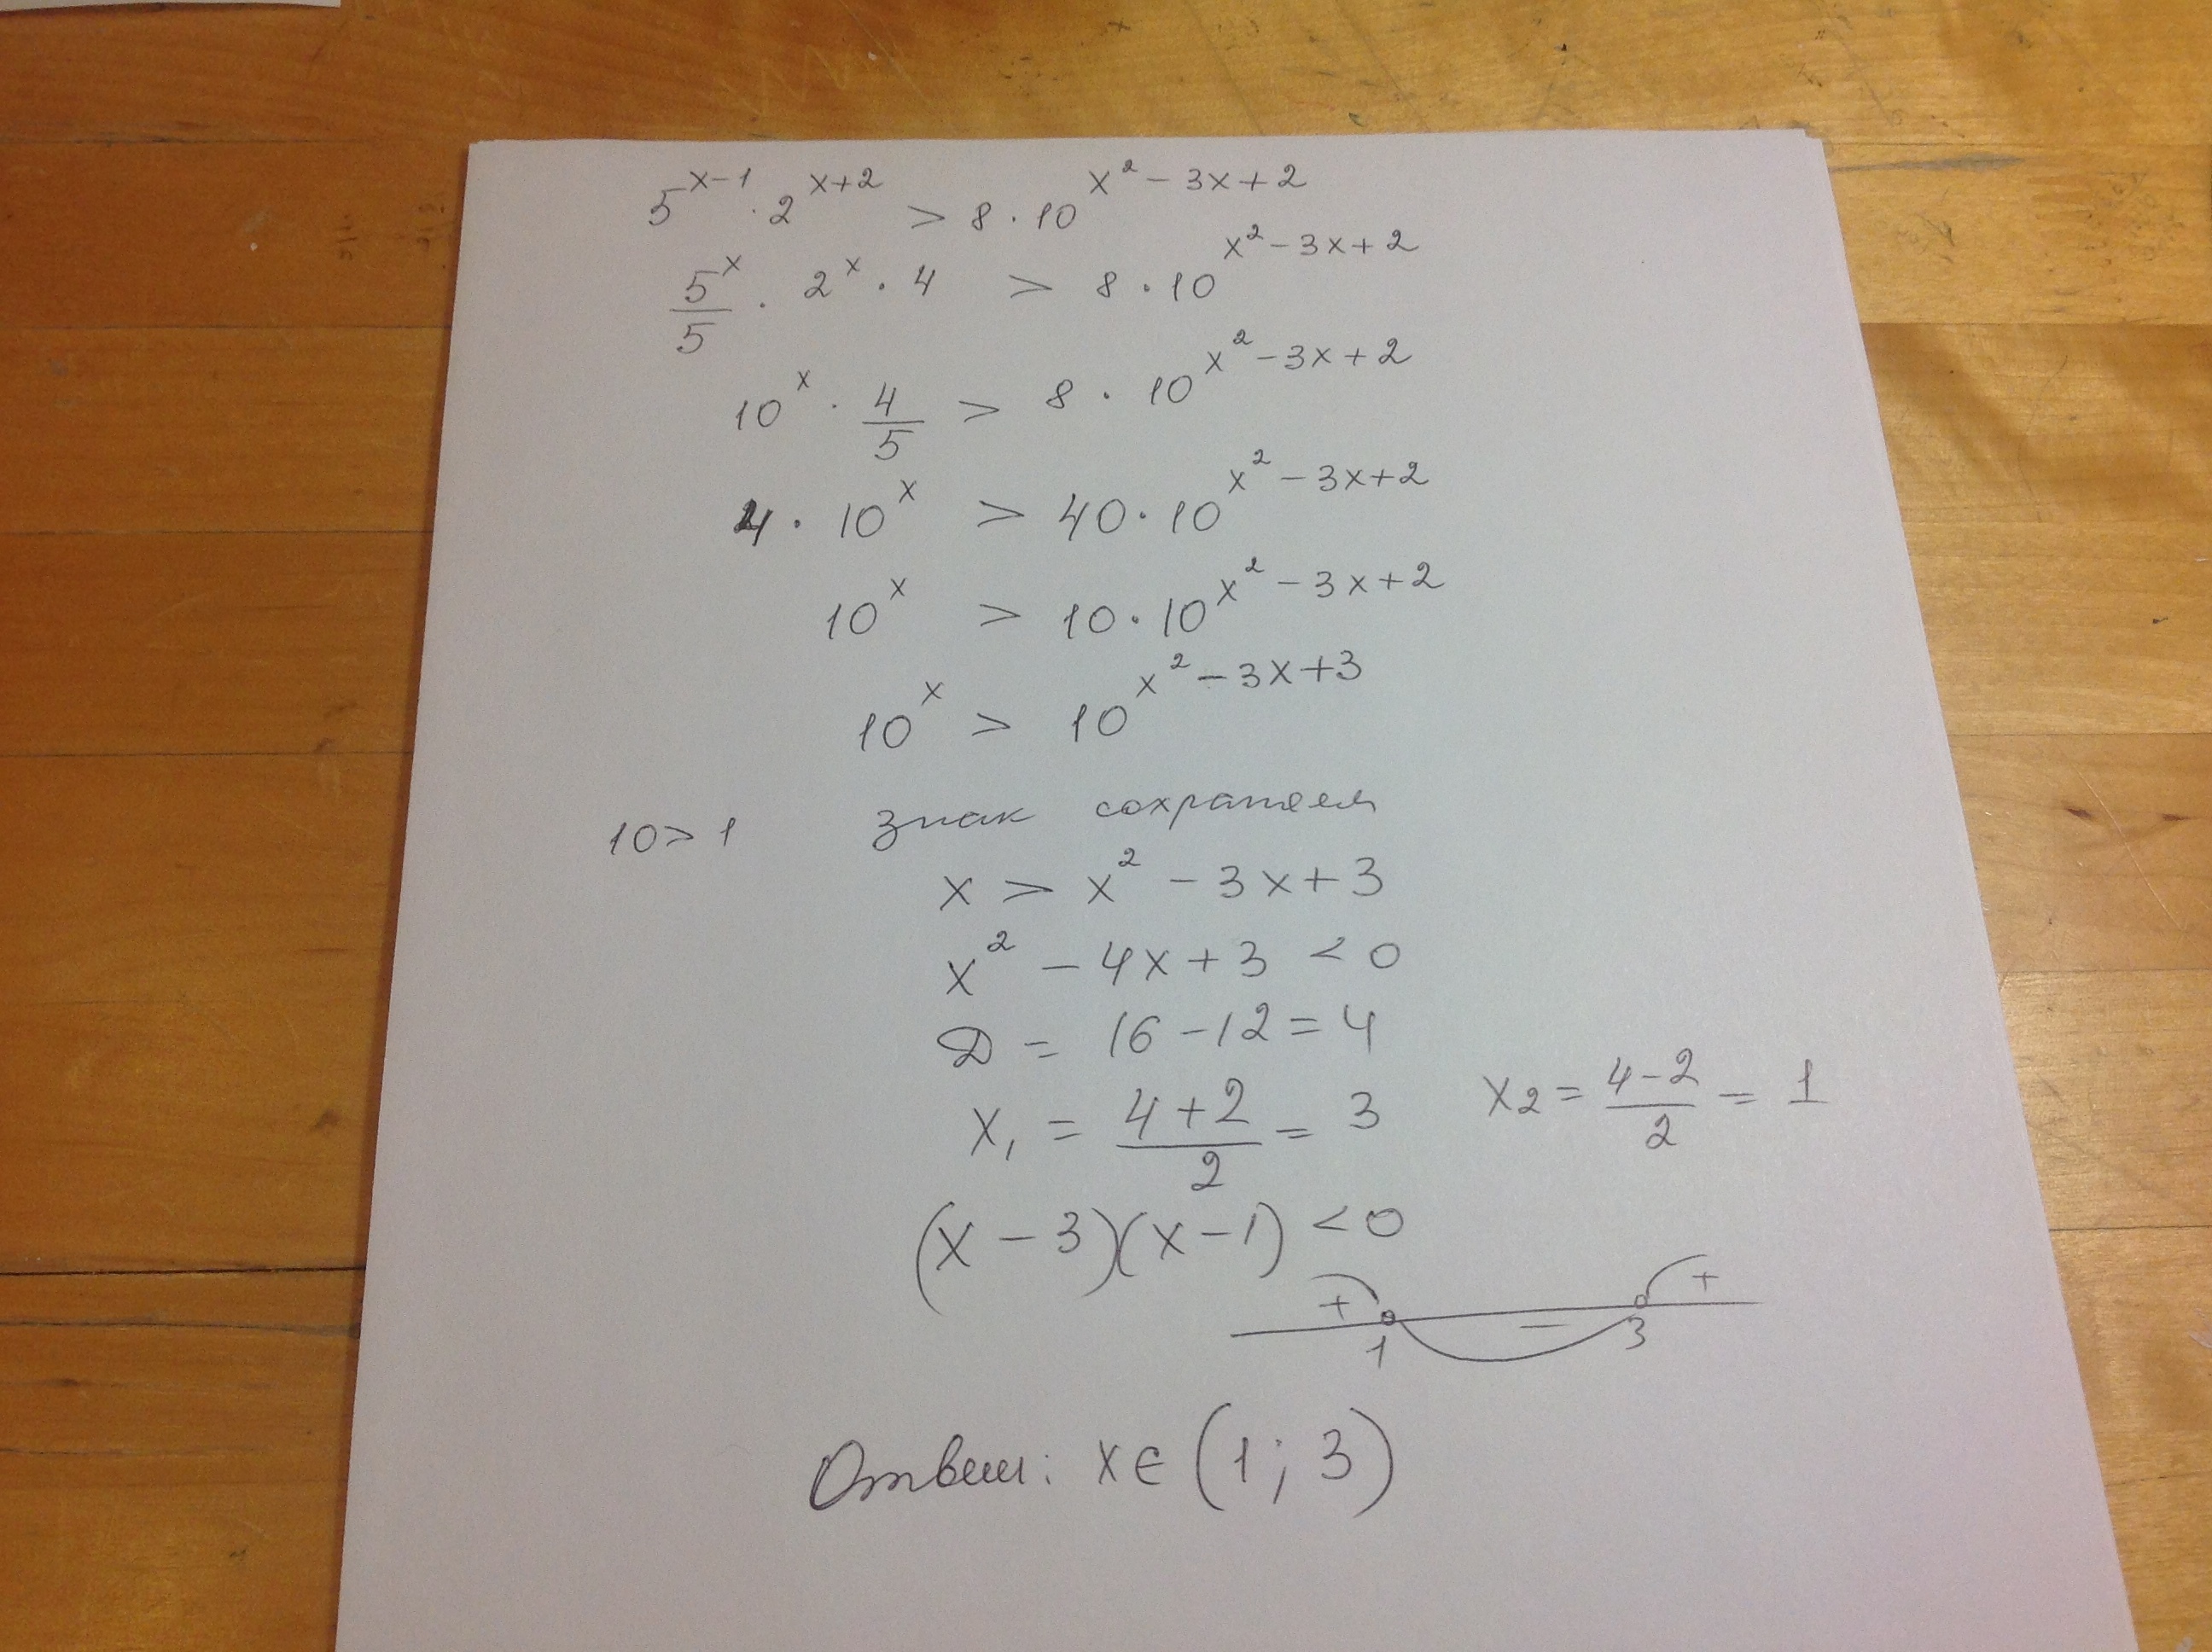 5^{x-1} · 2^{x+2} > 8 · 10^{x^2-3x+2}
\frac{5^x}{5} · 2^x · 4 > 8 · 10^{x^2-3x+2}
10^x · \frac{4}{5} > 8 · 10^{x^2-3x+2}
4 · 10^x > 40 · 10^{x^2-3x+2}
10^x > 10 · 10^{x^2-3x+2}
10^x > 10^{x^2-3x+3}
10 > 1 знак сохраняем
x > x^2 - 3x + 3
x^2 - 4x + 3 < 0
D = 16 - 12 = 4
x_1 = \frac{4+2}{2} = 3 x_2 = \frac{4-2}{2} = 1
(x - 3)(x - 1) < 0
+ − +
1 3
Ответ: x ∈ (1; 3)